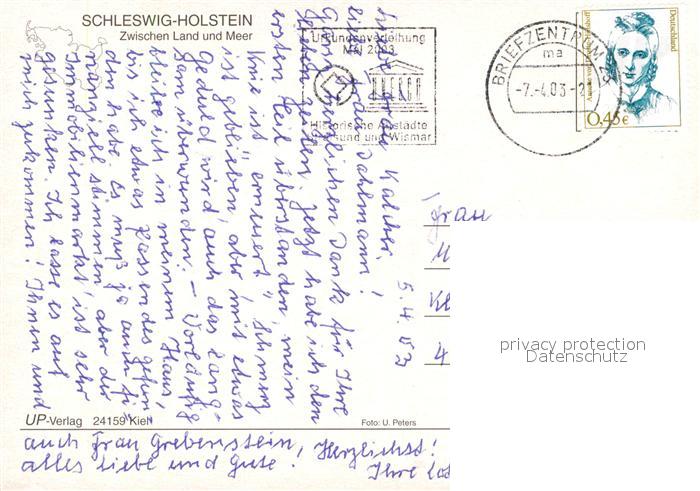 SCHLESWIG-HOLSTEIN
Zwischen Land und Meer
Urkundenverleihung
MAI 2003
Historische Altstädte
Stralsund und Wismar
BRIEFZENTRUM
ma
-7.-4.03-2
Deutschland
0,45€
5.4.03
Liebe Frau Kalcher,
liebe Frau Dahlmann!
Ganz herzlichen Dank für Ihre
lieben Zeilen. Jetzt habe ich den
ersten Teil überstanden, mein
Knie ist "erneuert", Schmerz
ist geblieben, aber mit etwas
Geduld wird auch das lang-
sam überwunden. – Vorläufig
bleibe ich in meinem Haus,
bis ich etwas passendes gefun-
den habe. Es muß ja auch fi-
nanziell stimmen, aber der
Immobilienmarkt ist sehr
gesunken. Ich lasse es auf
mich zukommen! Ihnen und
auch Frau Grebenstein, Herzlichst!
alles Liebe und Gute. Ihre
Frau
privacy protection
Datenschutz
UP-Verlag 24159 Kiel
Foto: U. Peters